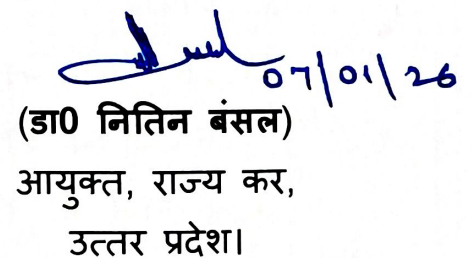 07/01/26
(डा0 नितिन बंसल)
आयुक्त, राज्य कर,
उत्तर प्रदेश।